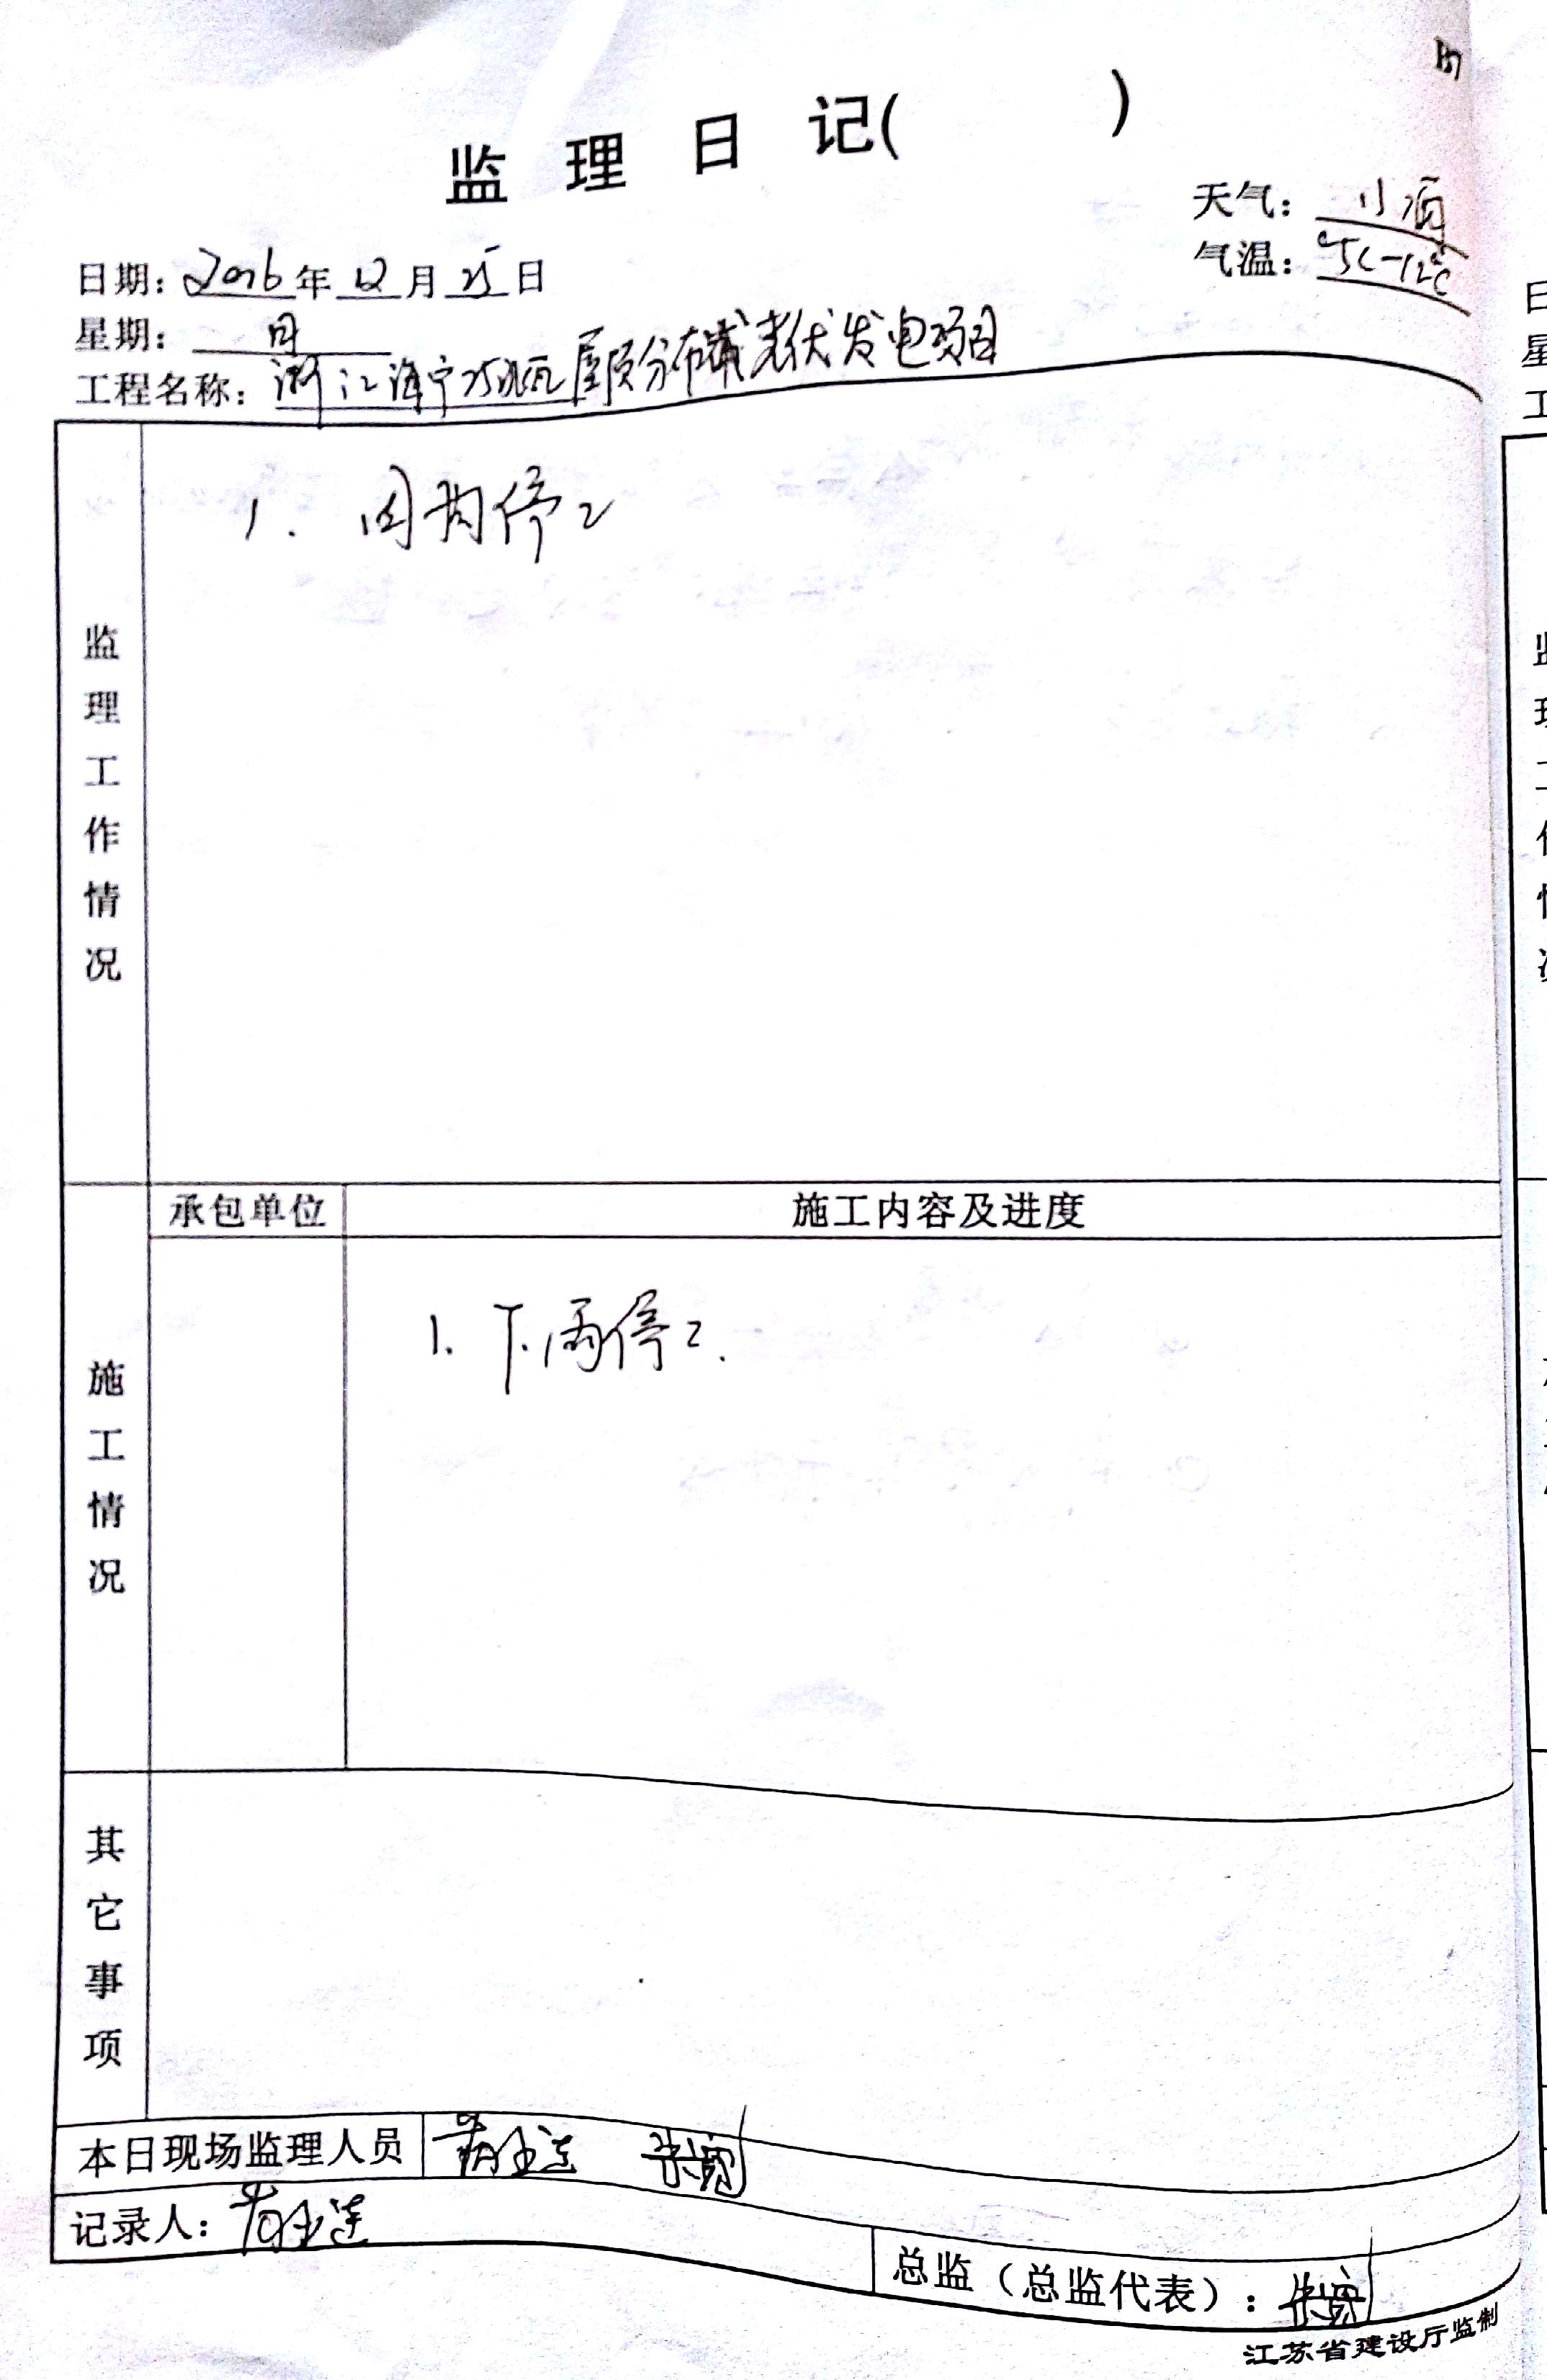 监 理 日 记(          )
天气: 小雨
气温: 5℃-12℃
日期: 2016年12月25日
星期: 日
工程名称: 浙江海宁25兆瓦屋顶分布式光伏发电项目
监理工作情况
1. 因雨停工
承包单位 施工内容及进度
施工情况
1. 下雨停工.
其它事项
本日现场监理人员
记录人:
总监（总监代表）:
江苏省建设厅监制